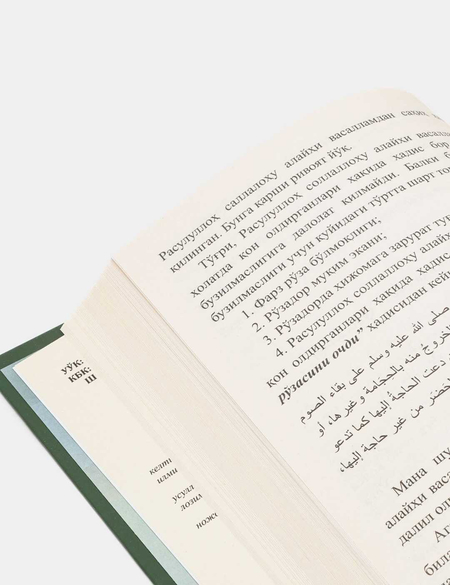 Расулуллох саллалоху алайхи васалламдан сахих
килинган. Бунга карши ривоят йўқ.
Тўғри, Расулуллох соллаллоху алайхи васалл
холатда кон олдирганлари хакида хадис бор
бузилмаслигига далолат килмайди. Балки б
бузилмаслиги учун қуйидаги тўртта шарт то
1. Фарз рўза бўлмоклиги;
2. Рўзадор муким экани;
3. Рўзадорда хижомага зарурат тур
4. Расулуллох соллаллоху алайх
кон олдирганлари хакида хадис
рўзасини очди” хадисидан кей
صلى الله عليه وسلم على بقاء الصوم
الخروج منه بالحجامة وغيرها، أو
دعت الحاجة إليها كما تدعو
من غير حاجة إليها،
Мана шу
алайхи васа
далил оли
Аг
била
да
УЎК:
КБК:
Ш
келти
илми
усулл
лозил
ножс